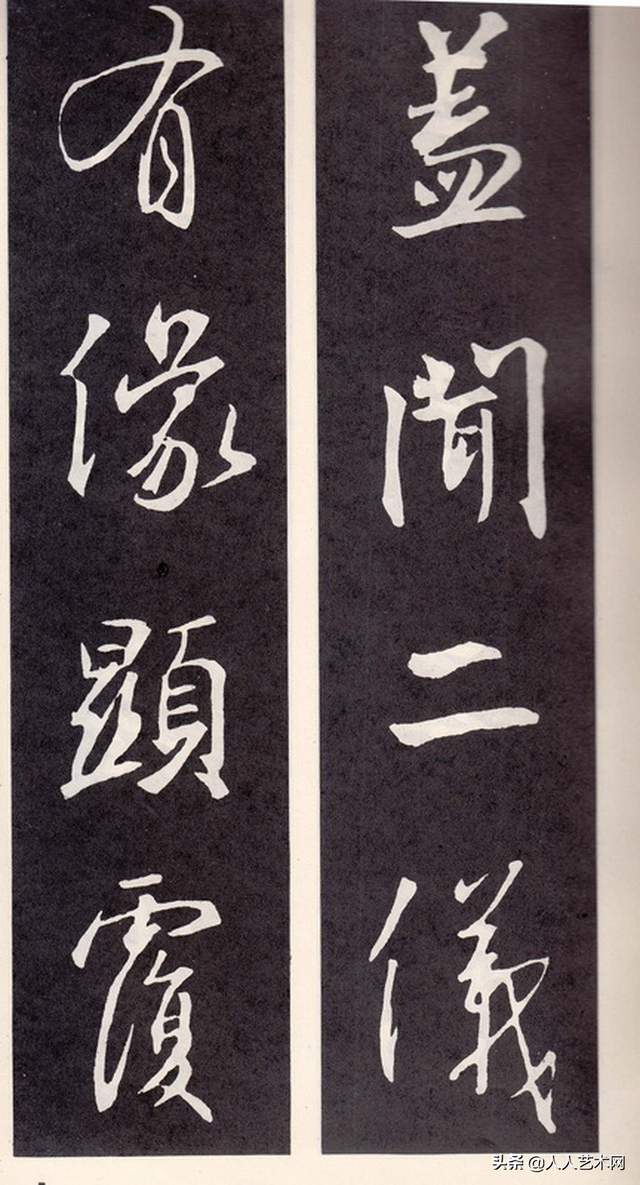 蓋聞二儀
有像顯覆
头条@人人艺术网